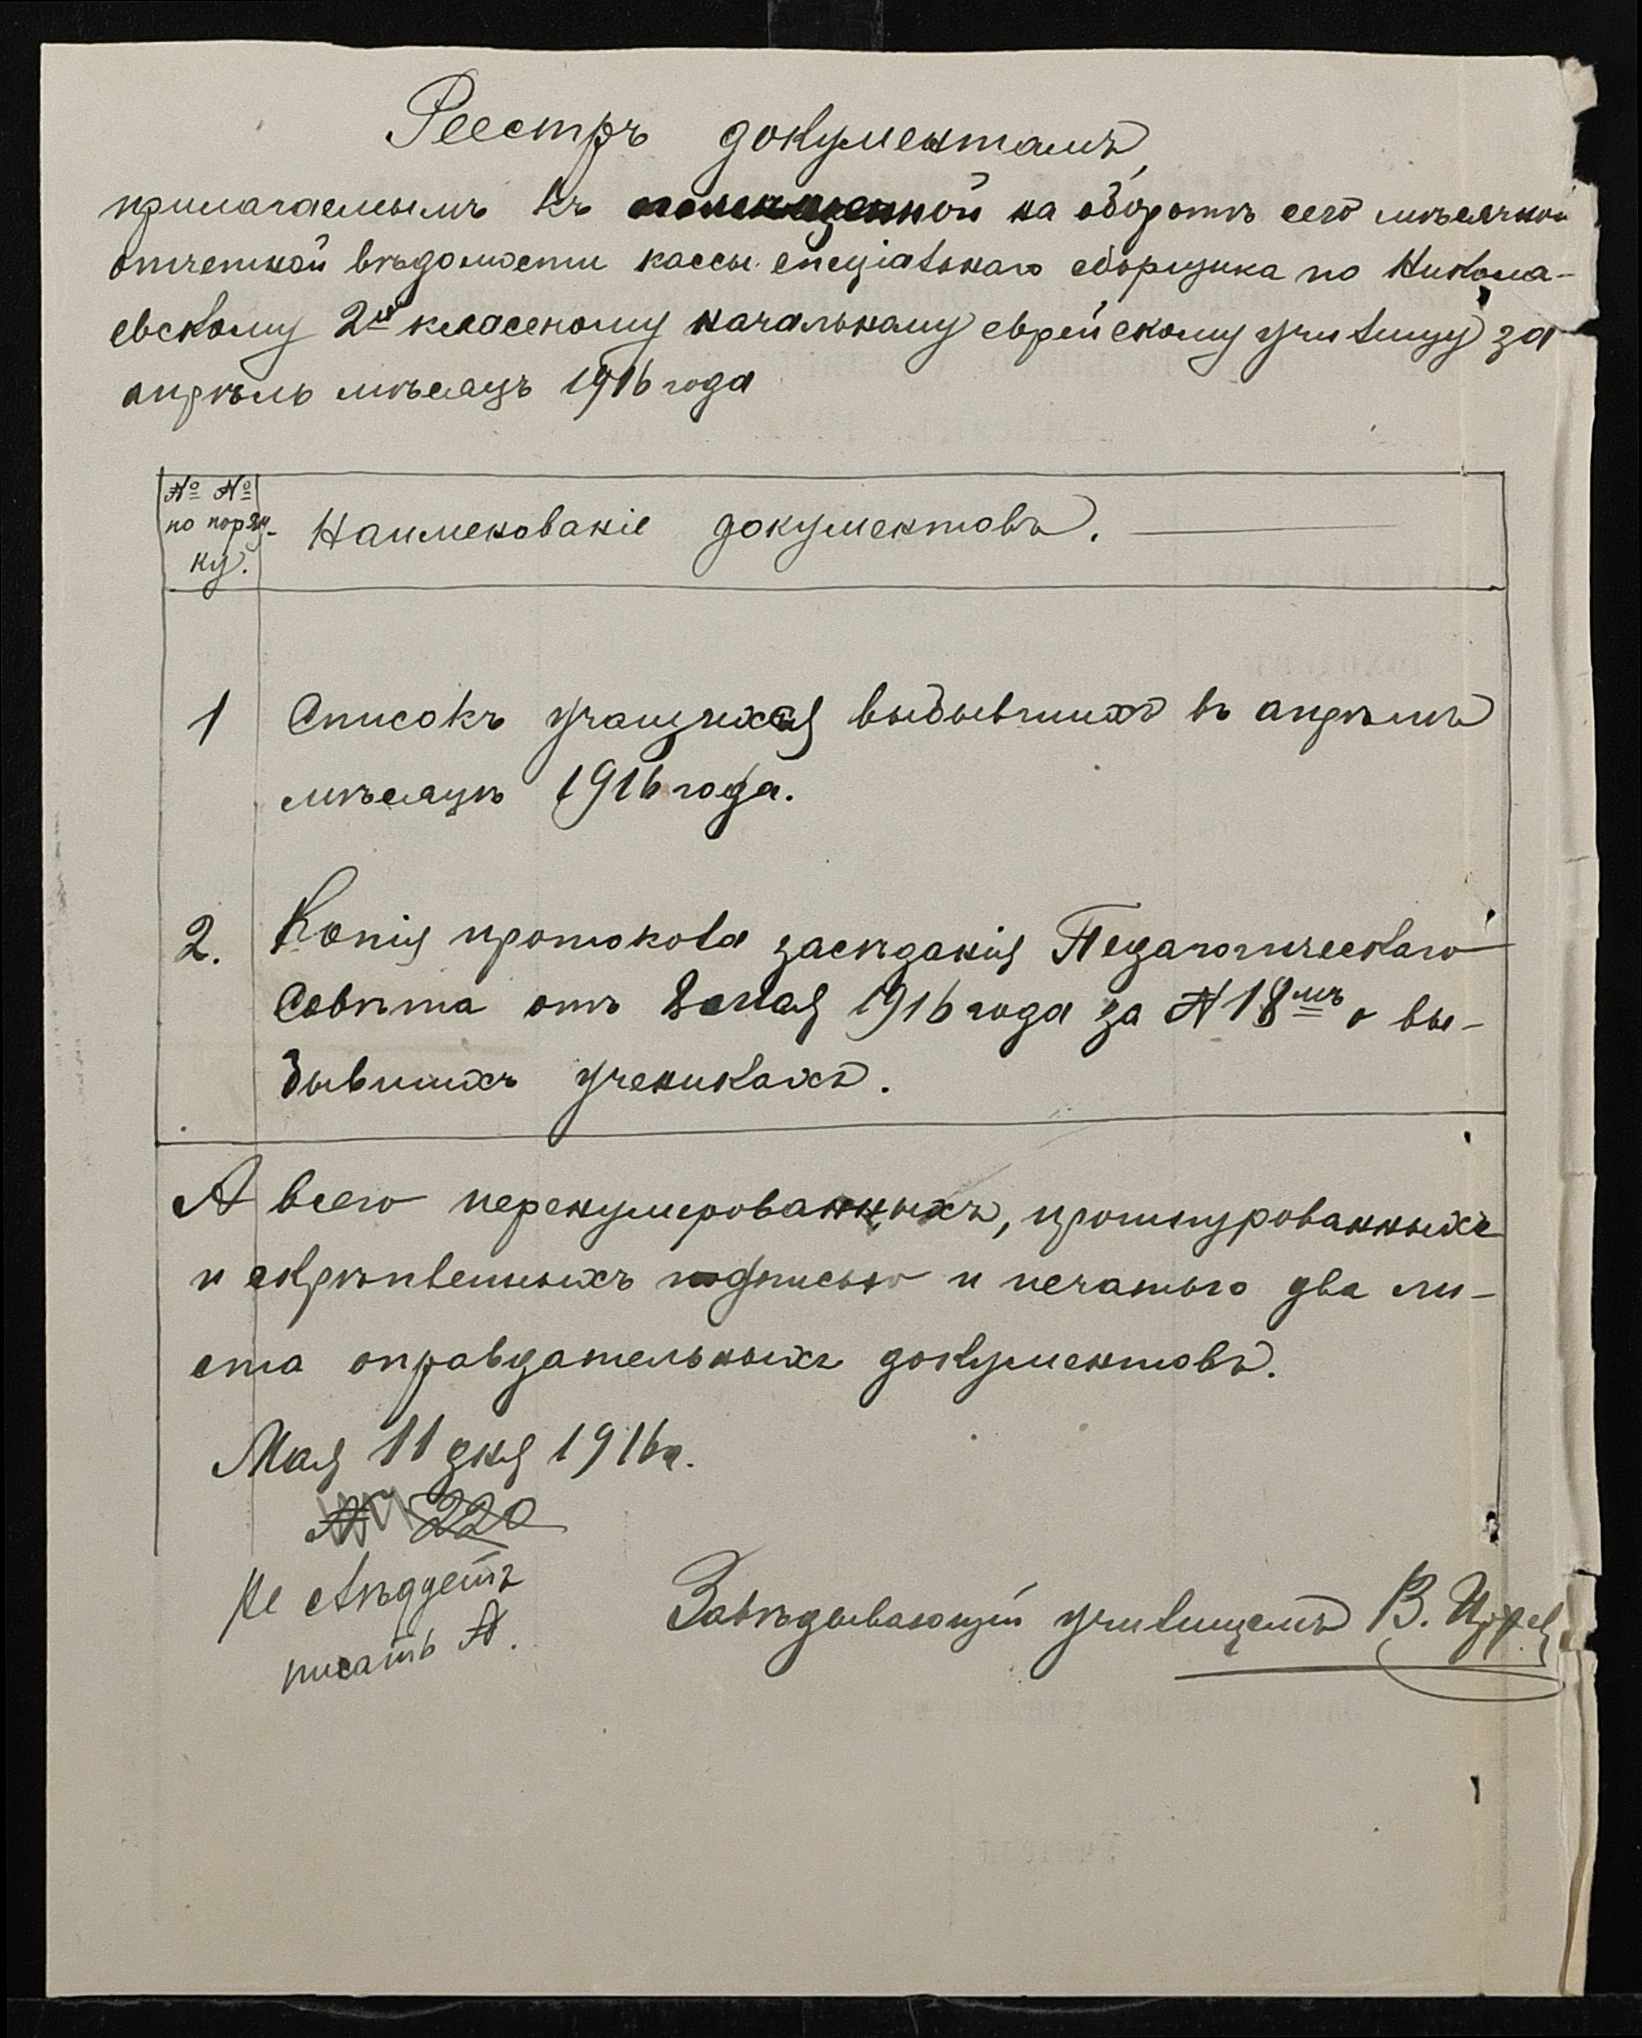 Реестръ документамъ,
прилагаемымъ къ помещенной на оборотѣ сего мѣсячной
отчетной вѣдомости кассы спеціальнаго сборщика по Никола-
евскому 2хъ классному начальному еврейскому училищу за
апрѣль мѣсяцъ 1916 года
№ № Наименованіе документовъ.
по поряд-
ку.
1 Списокъ учащихся выбывшихъ въ апрѣлѣ
мѣсяцѣ 1916 года.
2. Копія протокола засѣданія Педагогическаго
Совѣта отъ мая 1916 года за № 18мъ о вы-
бывшихъ ученикахъ.
А всего перенумерованныхъ, прошнурованныхъ
и скрѣпленныхъ подписью и печатью два ли-
ста оправдательныхъ документовъ.
Мая 11 дня 1916 г.
№ 220
Не слѣдуетъ
писать №.
Завѣдывающій училищемъ В.